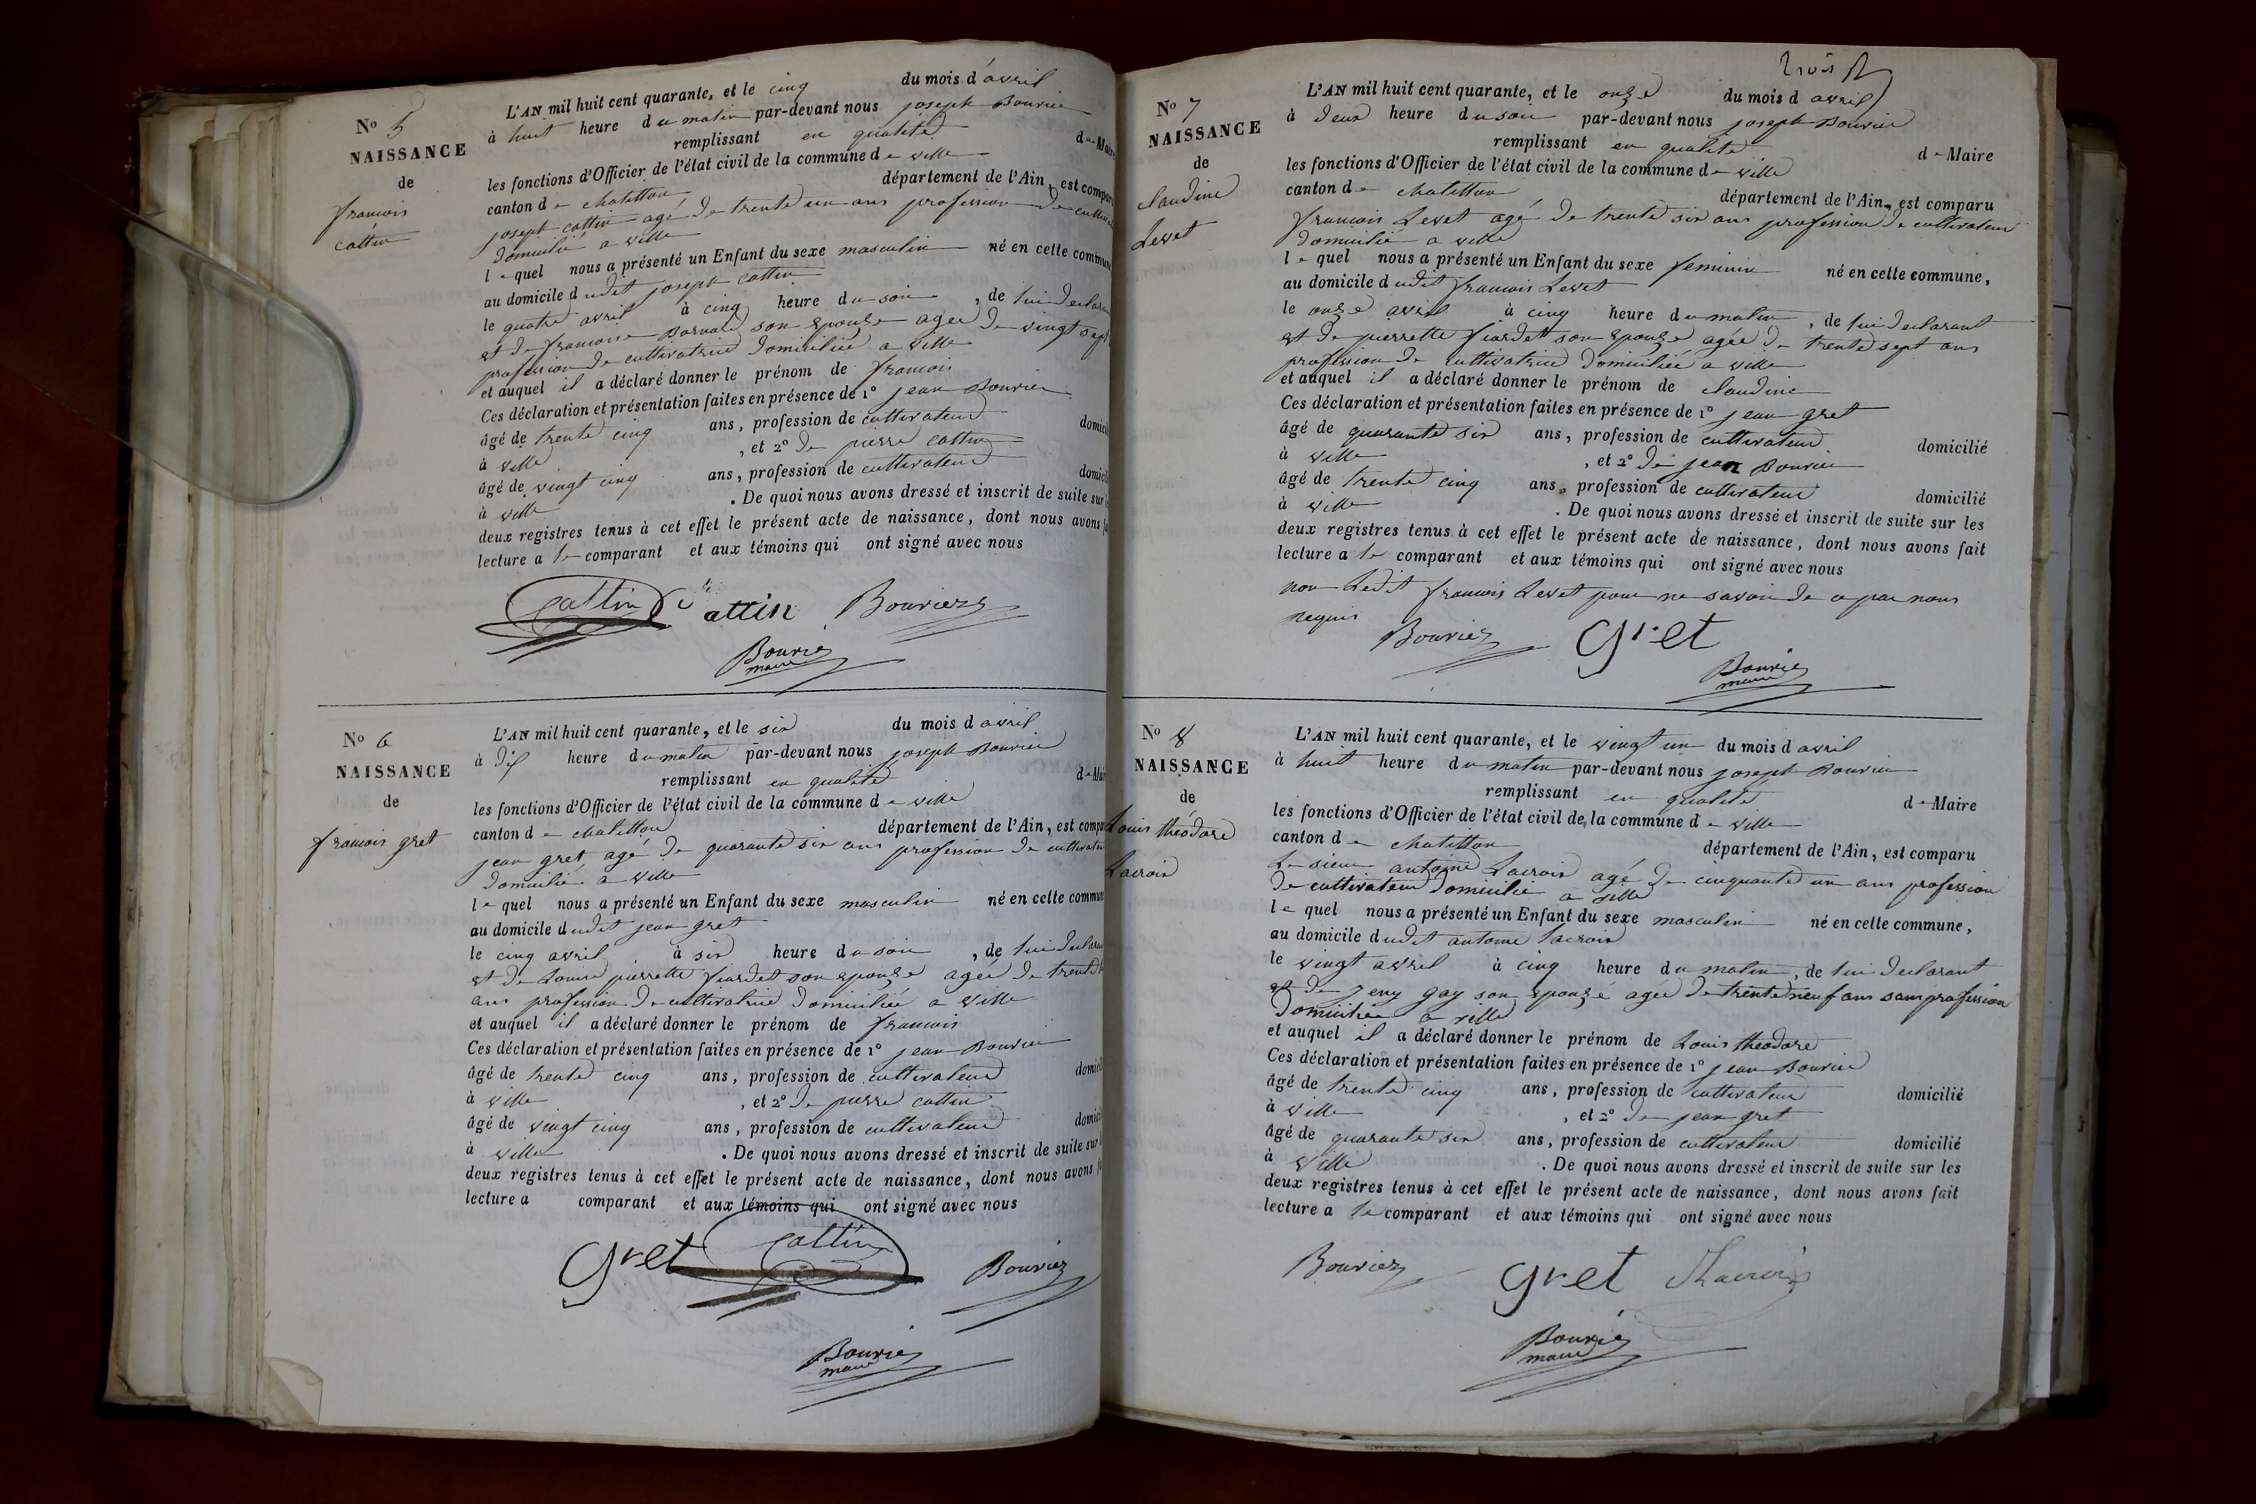 No 5
NAISSANCE
de
francois
cattin
L'AN mil huit cent quarante, et le cinq du mois d'avril
à huit heure du matin par-devant nous joseph Bouvier
remplissant en qualité de Maire
les fonctions d'Officier de l'état civil de la commune de ville
canton de chatillon département de l'Ain, est comparu
joseph cattin agé de trente un ans profession de cultiva
domicilié a ville
lequel nous a présenté un Enfant du sexe masculin né en cette commune
au domicile dudit joseph cattin
le quatre avril à cinq heure du soir, de lui declara
et de francoise son epouse agée de vingt sept
profession de cultivatrice domiciliée a ville
et auquel il a déclaré donner le prénom de francois
Ces déclaration et présentation faites en présence de 1° jean Bouvier
âgé de trente cinq ans, profession de cultivateur domici
à ville, et 2° de pierre cattin
âgé de vingt cinq ans, profession de cultivateur domici
à ville. De quoi nous avons dressé et inscrit de suite sur
deux registres tenus à cet effet le présent acte de naissance, dont nous avons
lecture a le comparant et aux témoins qui ont signé avec nous
Cattin Cattin Bouvier
Bouvier
maire
No 6
NAISSANCE
de
francois gret
L'AN mil huit cent quarante, et le six du mois d avril
à dix heure du matin par-devant nous joseph Bouvier
remplissant en qualité de Mai
les fonctions d'Officier de l'état civil de la commune de ville
canton de chatillon département de l'Ain, est compar
jean gret agé de quarante six ans profession de cultivateu
domicilié a ville
lequel nous a présenté un Enfant du sexe masculin né en cette commune
au domicile dudit jean gret
le cinq avril à six heure du soir, de lui declara
et de Louise pierrette fiardet son epouse agée de trente
ans profession de cultivatrice domiciliée a ville
et auquel il a déclaré donner le prénom de francois
Ces déclaration et présentation faites en présence de 1° jean Bouvier
âgé de trente cinq ans, profession de cultivateur domici
à ville, et 2° de pierre cattin
âgé de vingt cinq ans, profession de cultivateur domici
à ville. De quoi nous avons dressé et inscrit de suite sur
deux registres tenus à cet effet le présent acte de naissance, dont nous avons
lecture a comparant et aux témoins qui ont signé avec nous
gret Cattin Bouvier
Bouvier
maire
trois
No 7
NAISSANCE
de
claudine
Levet
L'AN mil huit cent quarante, et le onze du mois d avril
à deux heure du soir par-devant nous joseph Bouvier
remplissant en qualité de Maire
les fonctions d'Officier de l'état civil de la commune de ville
canton de chatillon département de l'Ain, est comparu
francois Levet agé de trente six ans profession de cultivateur
domicilié a ville
lequel nous a présenté un Enfant du sexe feminin né en cette commune,
au domicile dudit francois Levet
le onze avril à cinq heure du matin, de lui declarant
et de pierrette fiardet son epouse agée de trente sept ans
profession de cultivatrice domiciliée a ville
et auquel il a déclaré donner le prénom de claudine
Ces déclaration et présentation faites en présence de 1° jean gret
âgé de quarante six ans, profession de cultivateur domicilié
à ville, et 2° de jean Bouvier
âgé de trente cinq ans, profession de cultivateur domicilié
à ville. De quoi nous avons dressé et inscrit de suite sur les
deux registres tenus à cet effet le présent acte de naissance, dont nous avons fait
lecture a le comparant et aux témoins qui ont signé avec nous
non ledit francois Levet pour ne savoir de ce par nous
requis
Bouvier gret
Bouvier
maire
No 8
NAISSANCE
de
Louis théodore
Lacroix
L'AN mil huit cent quarante, et le vingt un du mois d avril
à huit heure du matin par-devant nous joseph Bouvier
remplissant en qualité de Maire
les fonctions d'Officier de l'état civil de la commune de ville
canton de chatillon département de l'Ain, est comparu
Le sieur antoine Lacroix agé de cinquante un ans profession
de cultivateur domicilié a ville
lequel nous a présenté un Enfant du sexe masculin né en cette commune,
au domicile dudit antoine lacroix
le vingt avril à cinq heure du matin, de lui declarant
et de jeny gay son epouse agée de trente neuf ans sans profession
domiciliée a ville
et auquel il a déclaré donner le prénom de Louis theodore
Ces déclaration et présentation faites en présence de 1° jean Bouvier
âgé de trente cinq ans, profession de cultivateur domicilié
à ville, et 2° de jean gret
âgé de quarante six ans, profession de cultivateur domicilié
à ville. De quoi nous avons dressé et inscrit de suite sur les
deux registres tenus à cet effet le présent acte de naissance, dont nous avons fait
lecture a le comparant et aux témoins qui ont signé avec nous
Bouvier gret Lacroix
Bouvier
maire